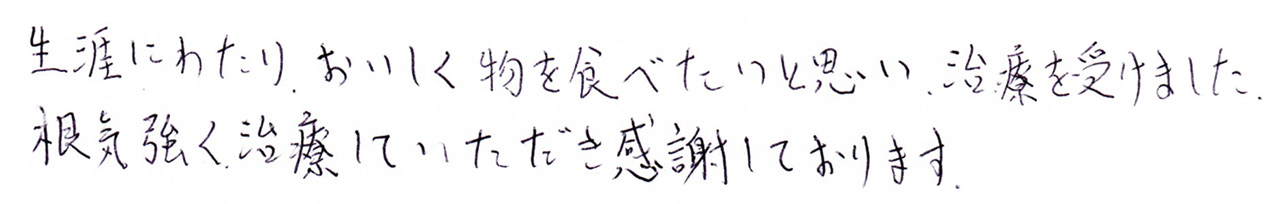 生涯にわたり、おいしく物を食べたいと思い、治療を受けました。
根気強く治療していただき感謝しております。